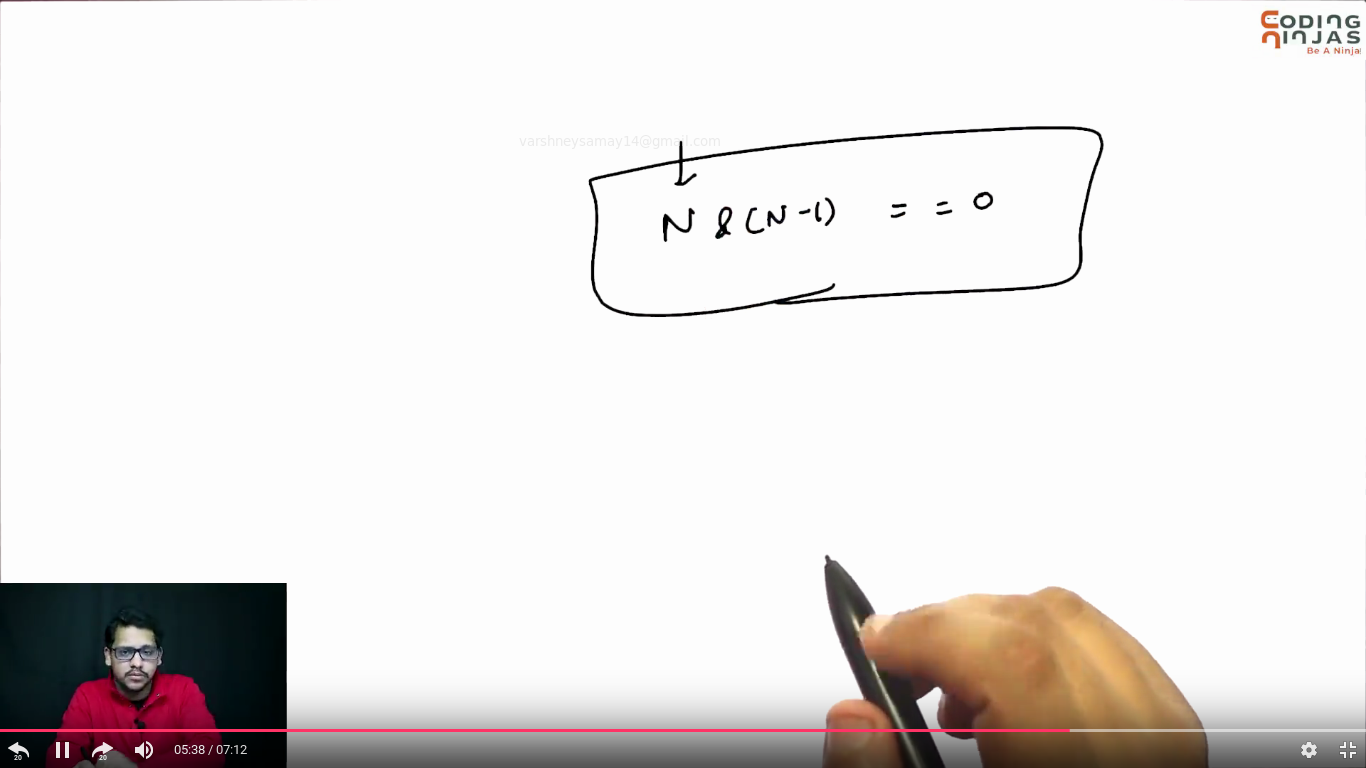 CODING
NINJAS
Be A Ninja
varshneysamay14@gmail.com
N & (N-1) = = 0
20
20
05:38 / 07:12